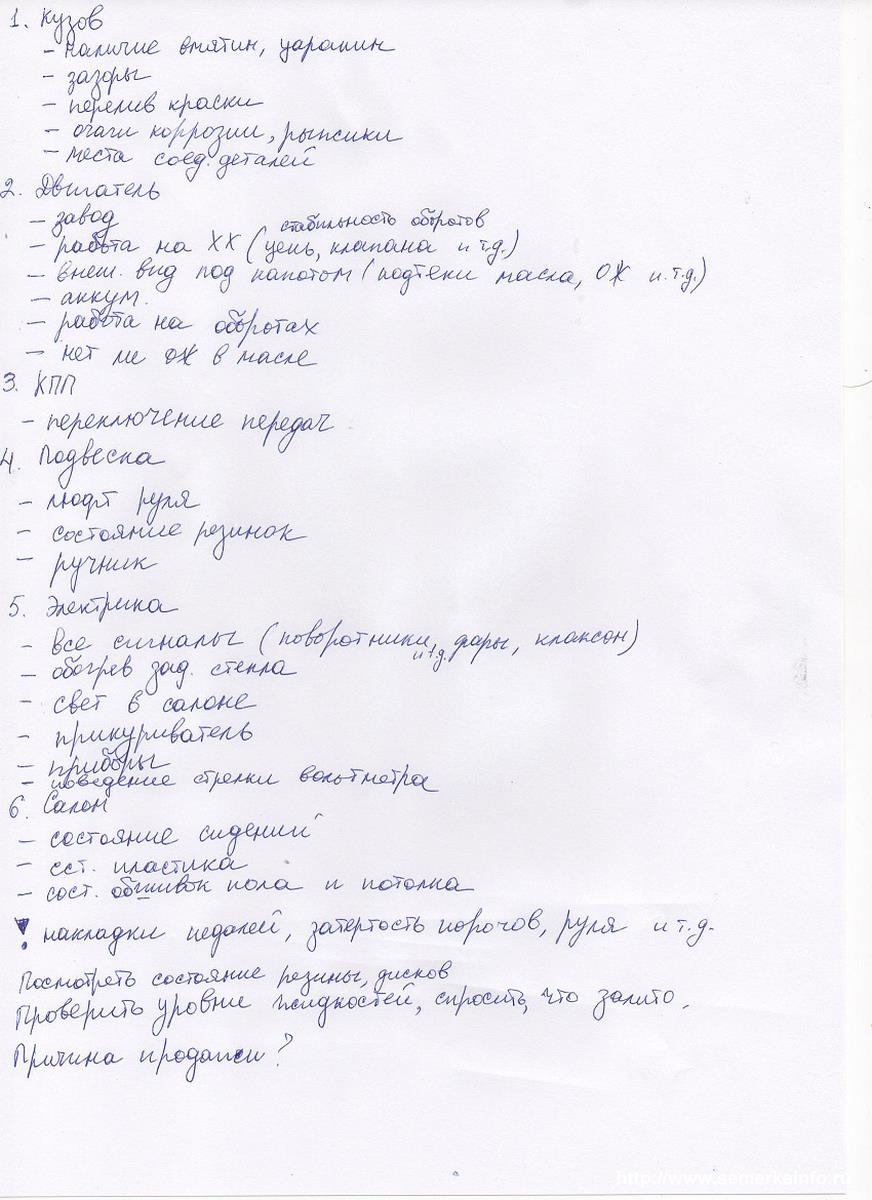 1. Кузов
- наличие вмятин, царапин
- зазоры
- перелив краски
- очаги коррозии, рыжики
- места соед. деталей
2. Двигатель
- завод
стабильность оборотов
- работа на ХХ (цепь, клапана и т.д.)
- внеш. вид под капотом (подтеки масла, ОЖ и.т.д.)
- аккум.
- работа на оборотах
- нет ли ОЖ в масле
3. КПП
- переключение передач
4. Подвеска
- люфт руля
- состояние резинок
- ручник
5. Электрика
- все сигналы (поворотники, фары, клаксон)
и т.д.
- обогрев зад. стекла
- свет в салоне
- прикуриватель
- приборы
- поведение стрелки вольтметра
6. Салон
- состояние сидений
- сст. пластика
- сост. обшивок пола и потолка
! накладки педалей, затертость порочов, руля и т.д.
Посмотреть состояние резины, дисков
Проверить уровни жидкостей, спросить, что залито.
Причина продажи?
http://www.semerkainfo.ru